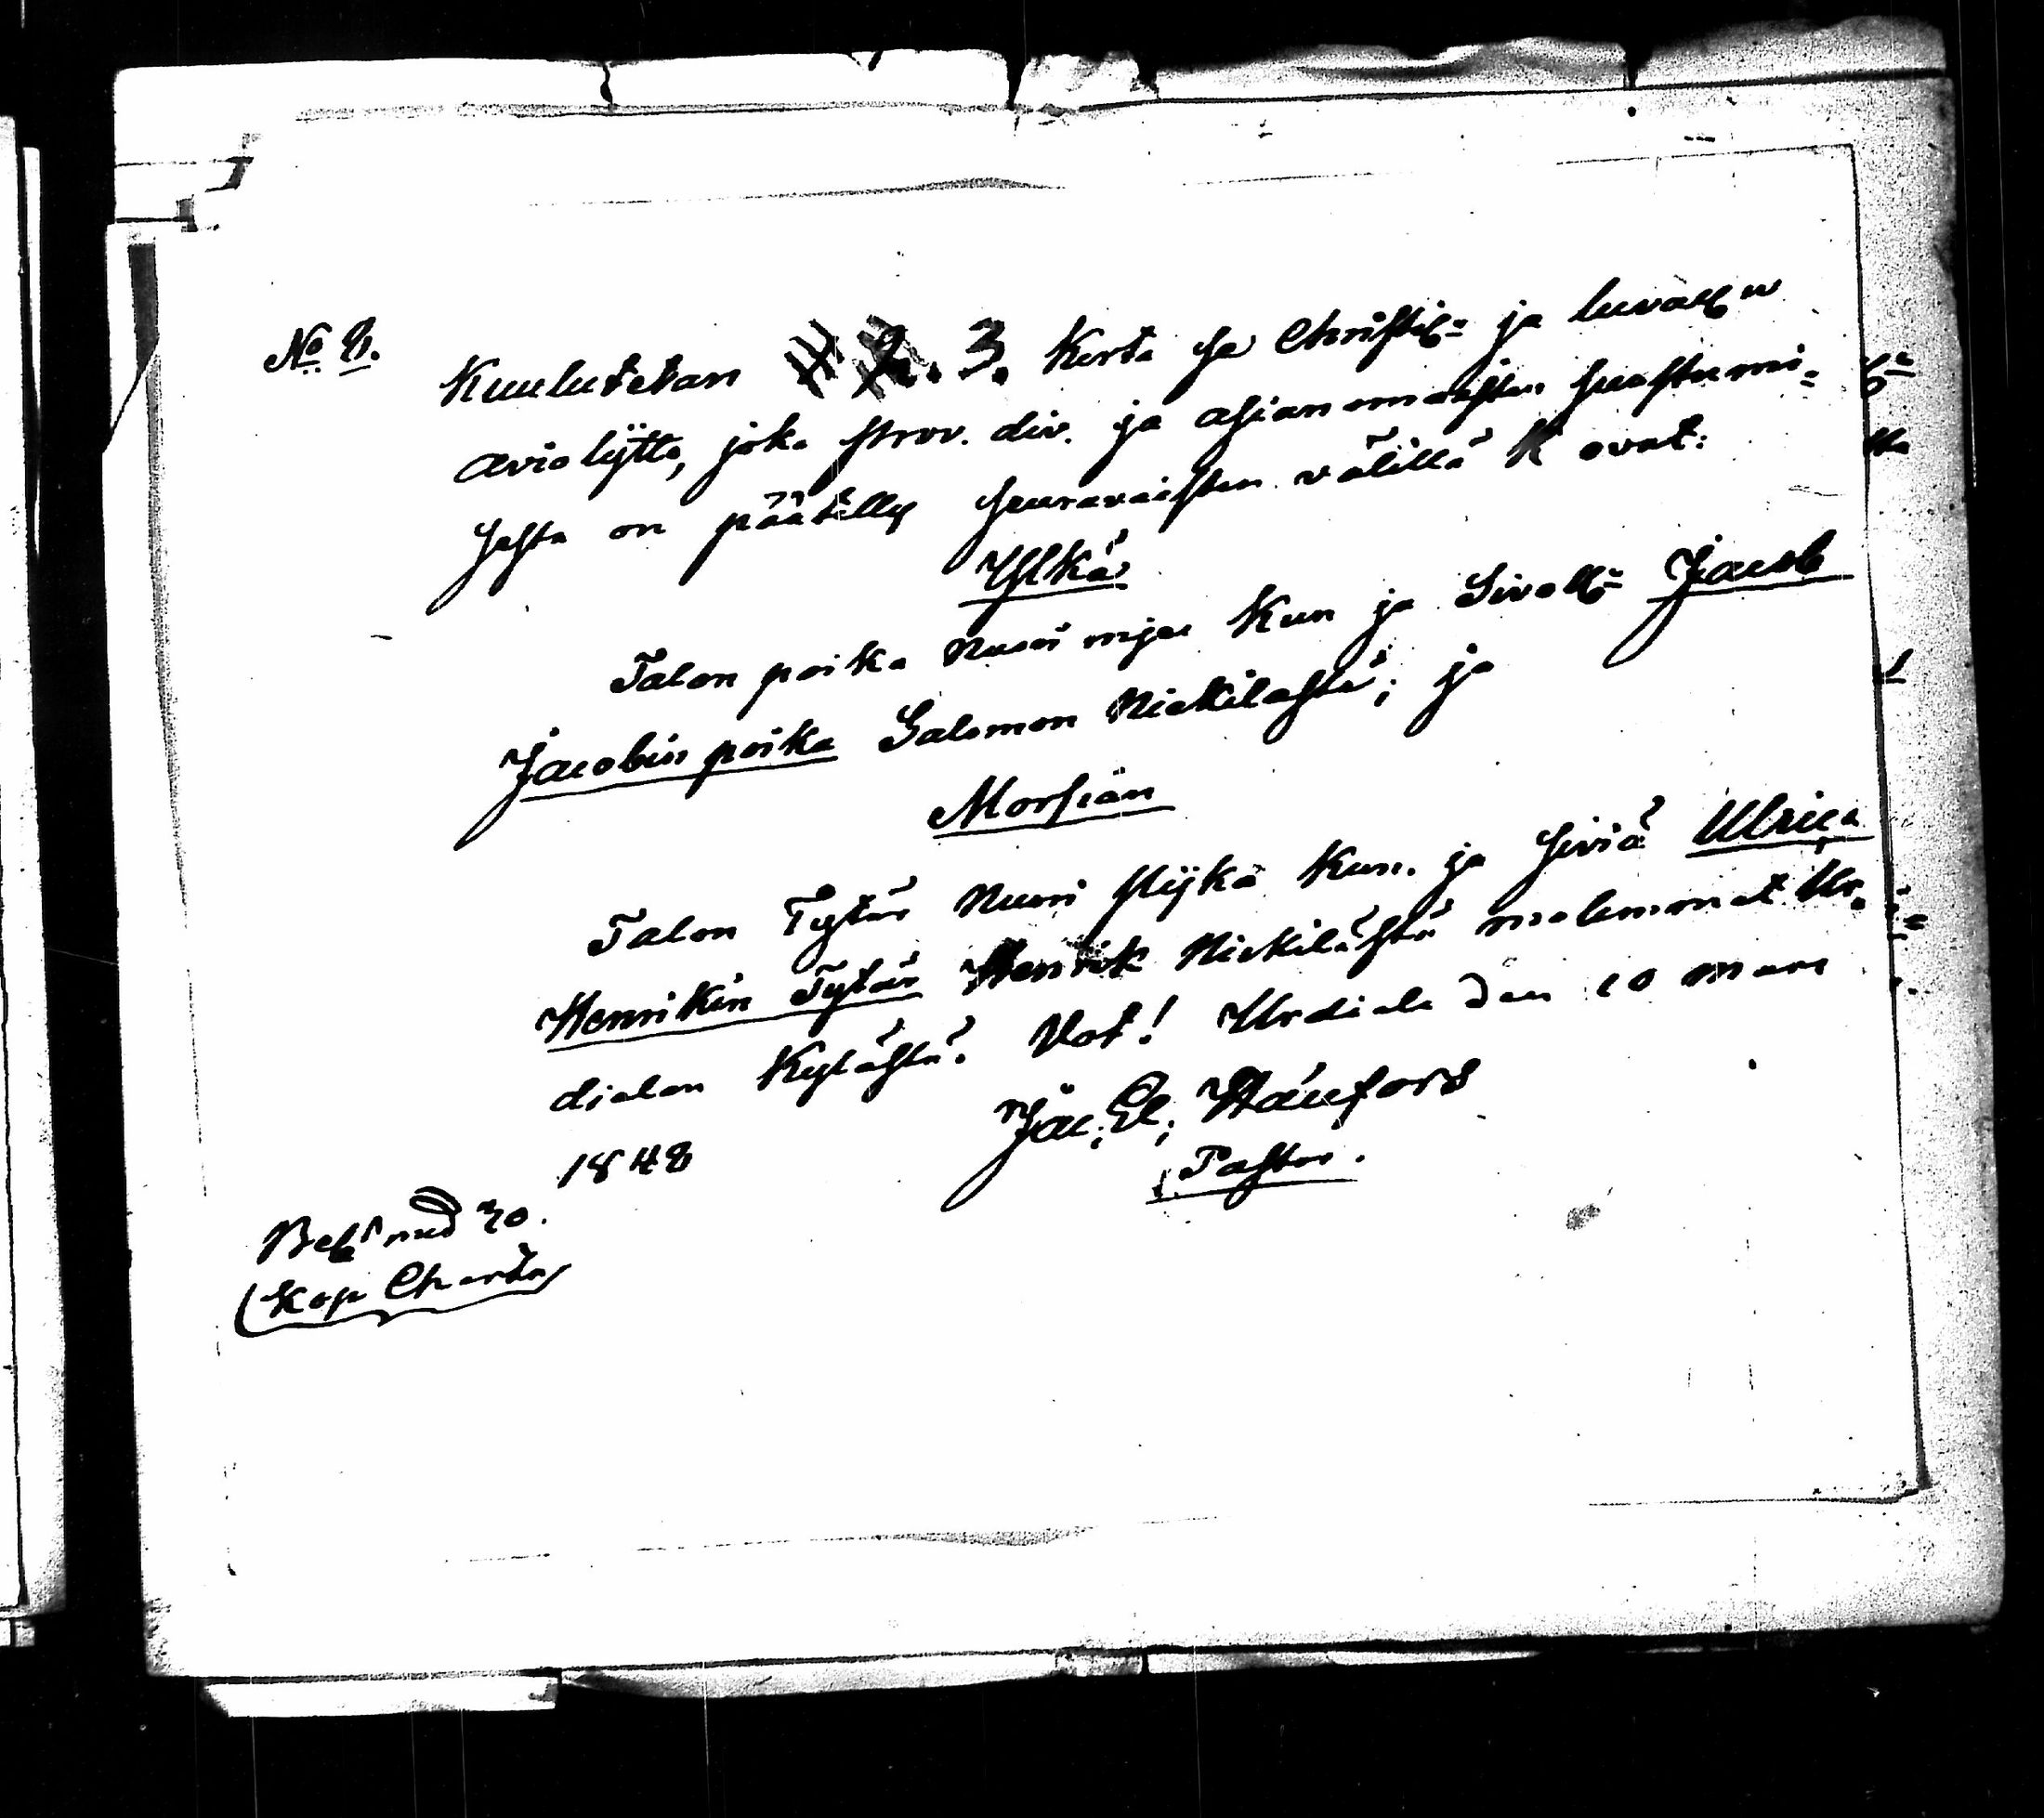 No 8. Kuulutetan 1. 2. 3. Kerta se Christil: ja luvall:n
avioliÿtto, joka prov. div. ja asianomaisten suostumi-
sesta on päätetty seuravaisten välillä k ovat:
Ylkä
Talon poika nuori mjes Kun ja Sivell: Jacob
Jacobin poika Salomon Nickilästä; ja
Morsian
Talon Tytär Nuori Pijka Kun. ja siviä Ulrica
Henrikin Tytär Henrik Nickilästä molemmat Ur-
dialan Kylästä. Vot! Urdiala den 10 mars
1848
Jac. El. Häufors
Pastor.
Bel. med 20.
Kop Charta